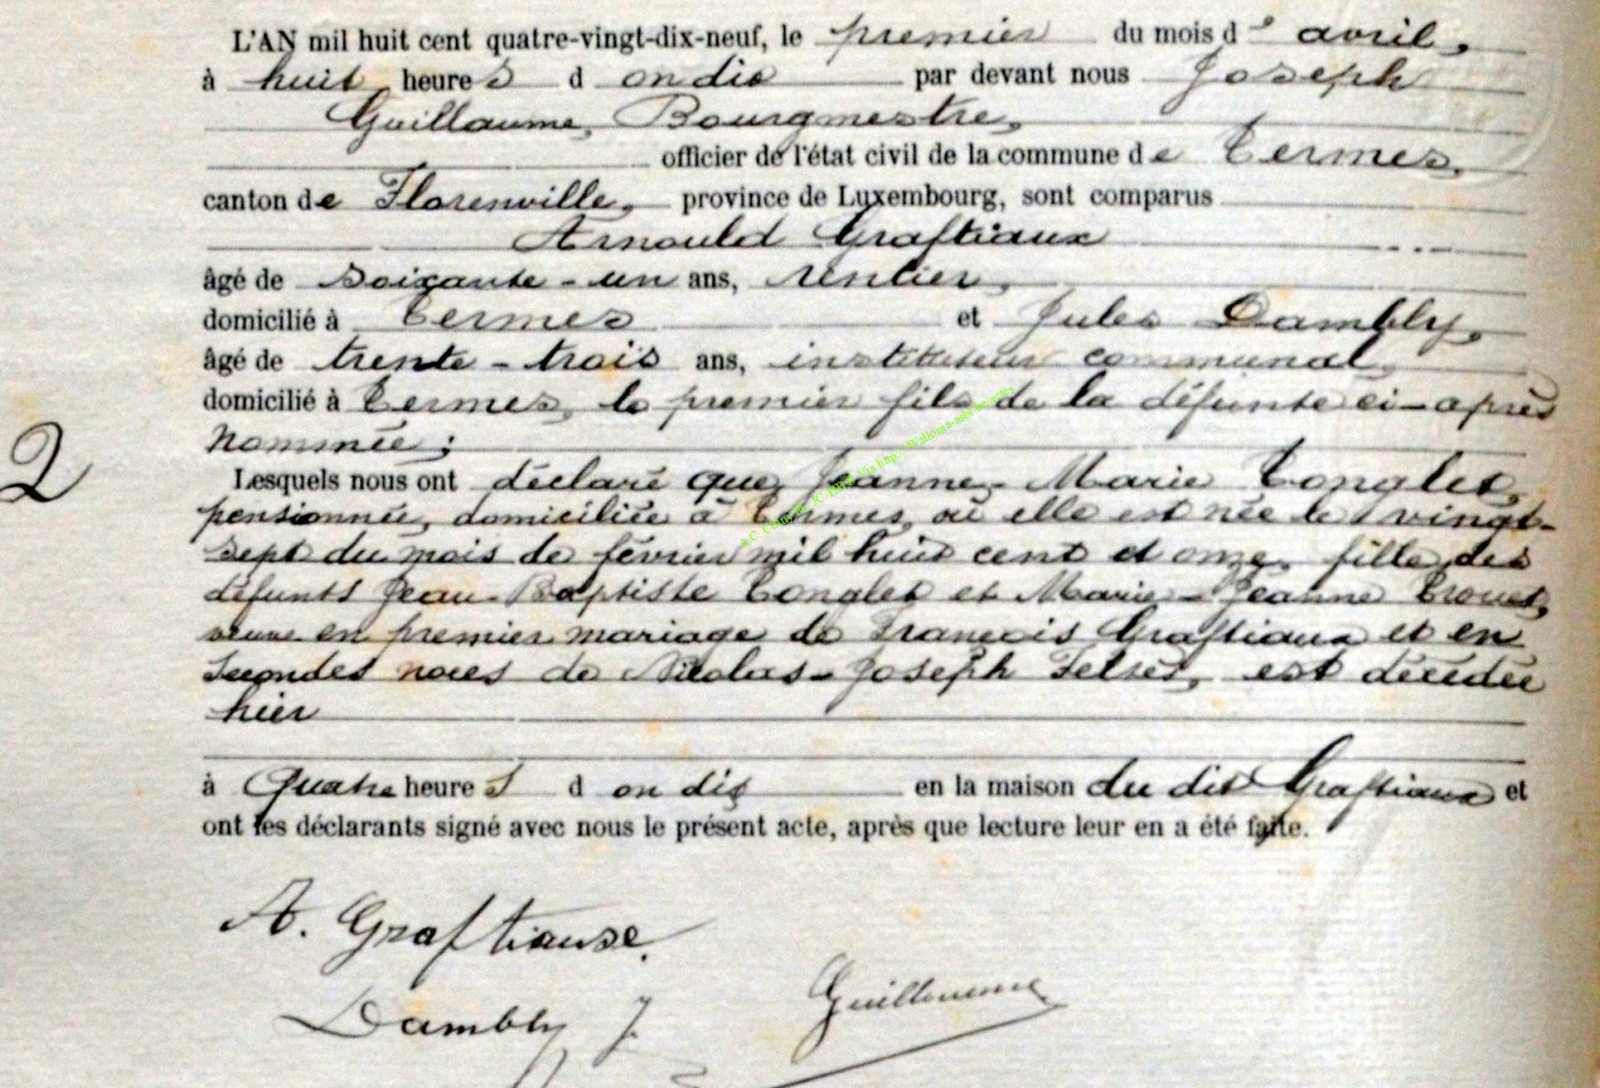 L'AN mil huit cent quatre-vingt-dix-neuf, le premier du mois de avril,
à huit heures d on dis par devant nous Joseph
Guillaume, Bourgmestre,
officier de l'état civil de la commune de Termes,
canton de Florenville, province de Luxembourg, sont comparus
Arnould Graftiaux
âgé de soixante-un ans, rentier,
domicilié à Termes et Jules Dambly,
âgé de trente-trois ans, instituteur communal,
domicilié à Termes, le premier fils de la défunte ci-après
nommée;
2
Lesquels nous ont déclaré que Jeanne-Marie Tonglet,
pensionnée, domiciliée à Termes, où elle est née le vingt-
sept du mois de février mil huit cent et onze, fille des
défunts Jean-Baptiste Tonglet et Marie-Jeanne
veuve en premier mariage de François Graftiaux et en
secondes noces de Nicolas-Joseph est décédée
hier
à quatre heures d on dis en la maison du dit Graftiaux et
ont les déclarants signé avec nous le présent acte, après que lecture leur en a été faite.
A. Graftiaux.
Dambly J.
Guillaume